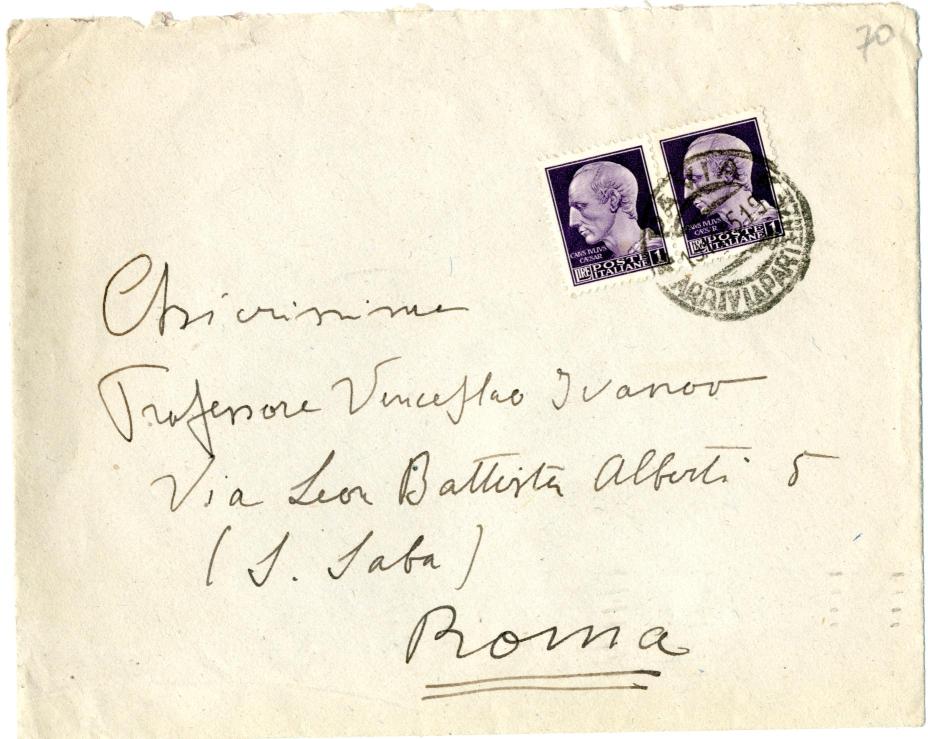 70
PAVIA
ARRIVI E PARTENZE
CAIVS IVLIVS
CAESAR
LIRE POSTE ITALIANE 1
CAIVS IVLIVS
CAESAR
LIRE POSTE ITALIANE 1
Chiarissimo
Professore Venceslao Ivanov
Via Leon Battista Alberti 5
(S. Saba)
Roma